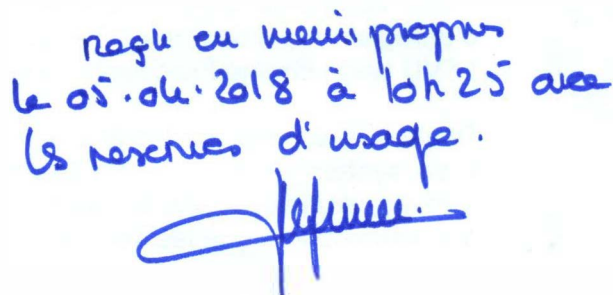 reçu en mains propres
le 05.04.2018 à 10h25 avec
les reserves d'usage.